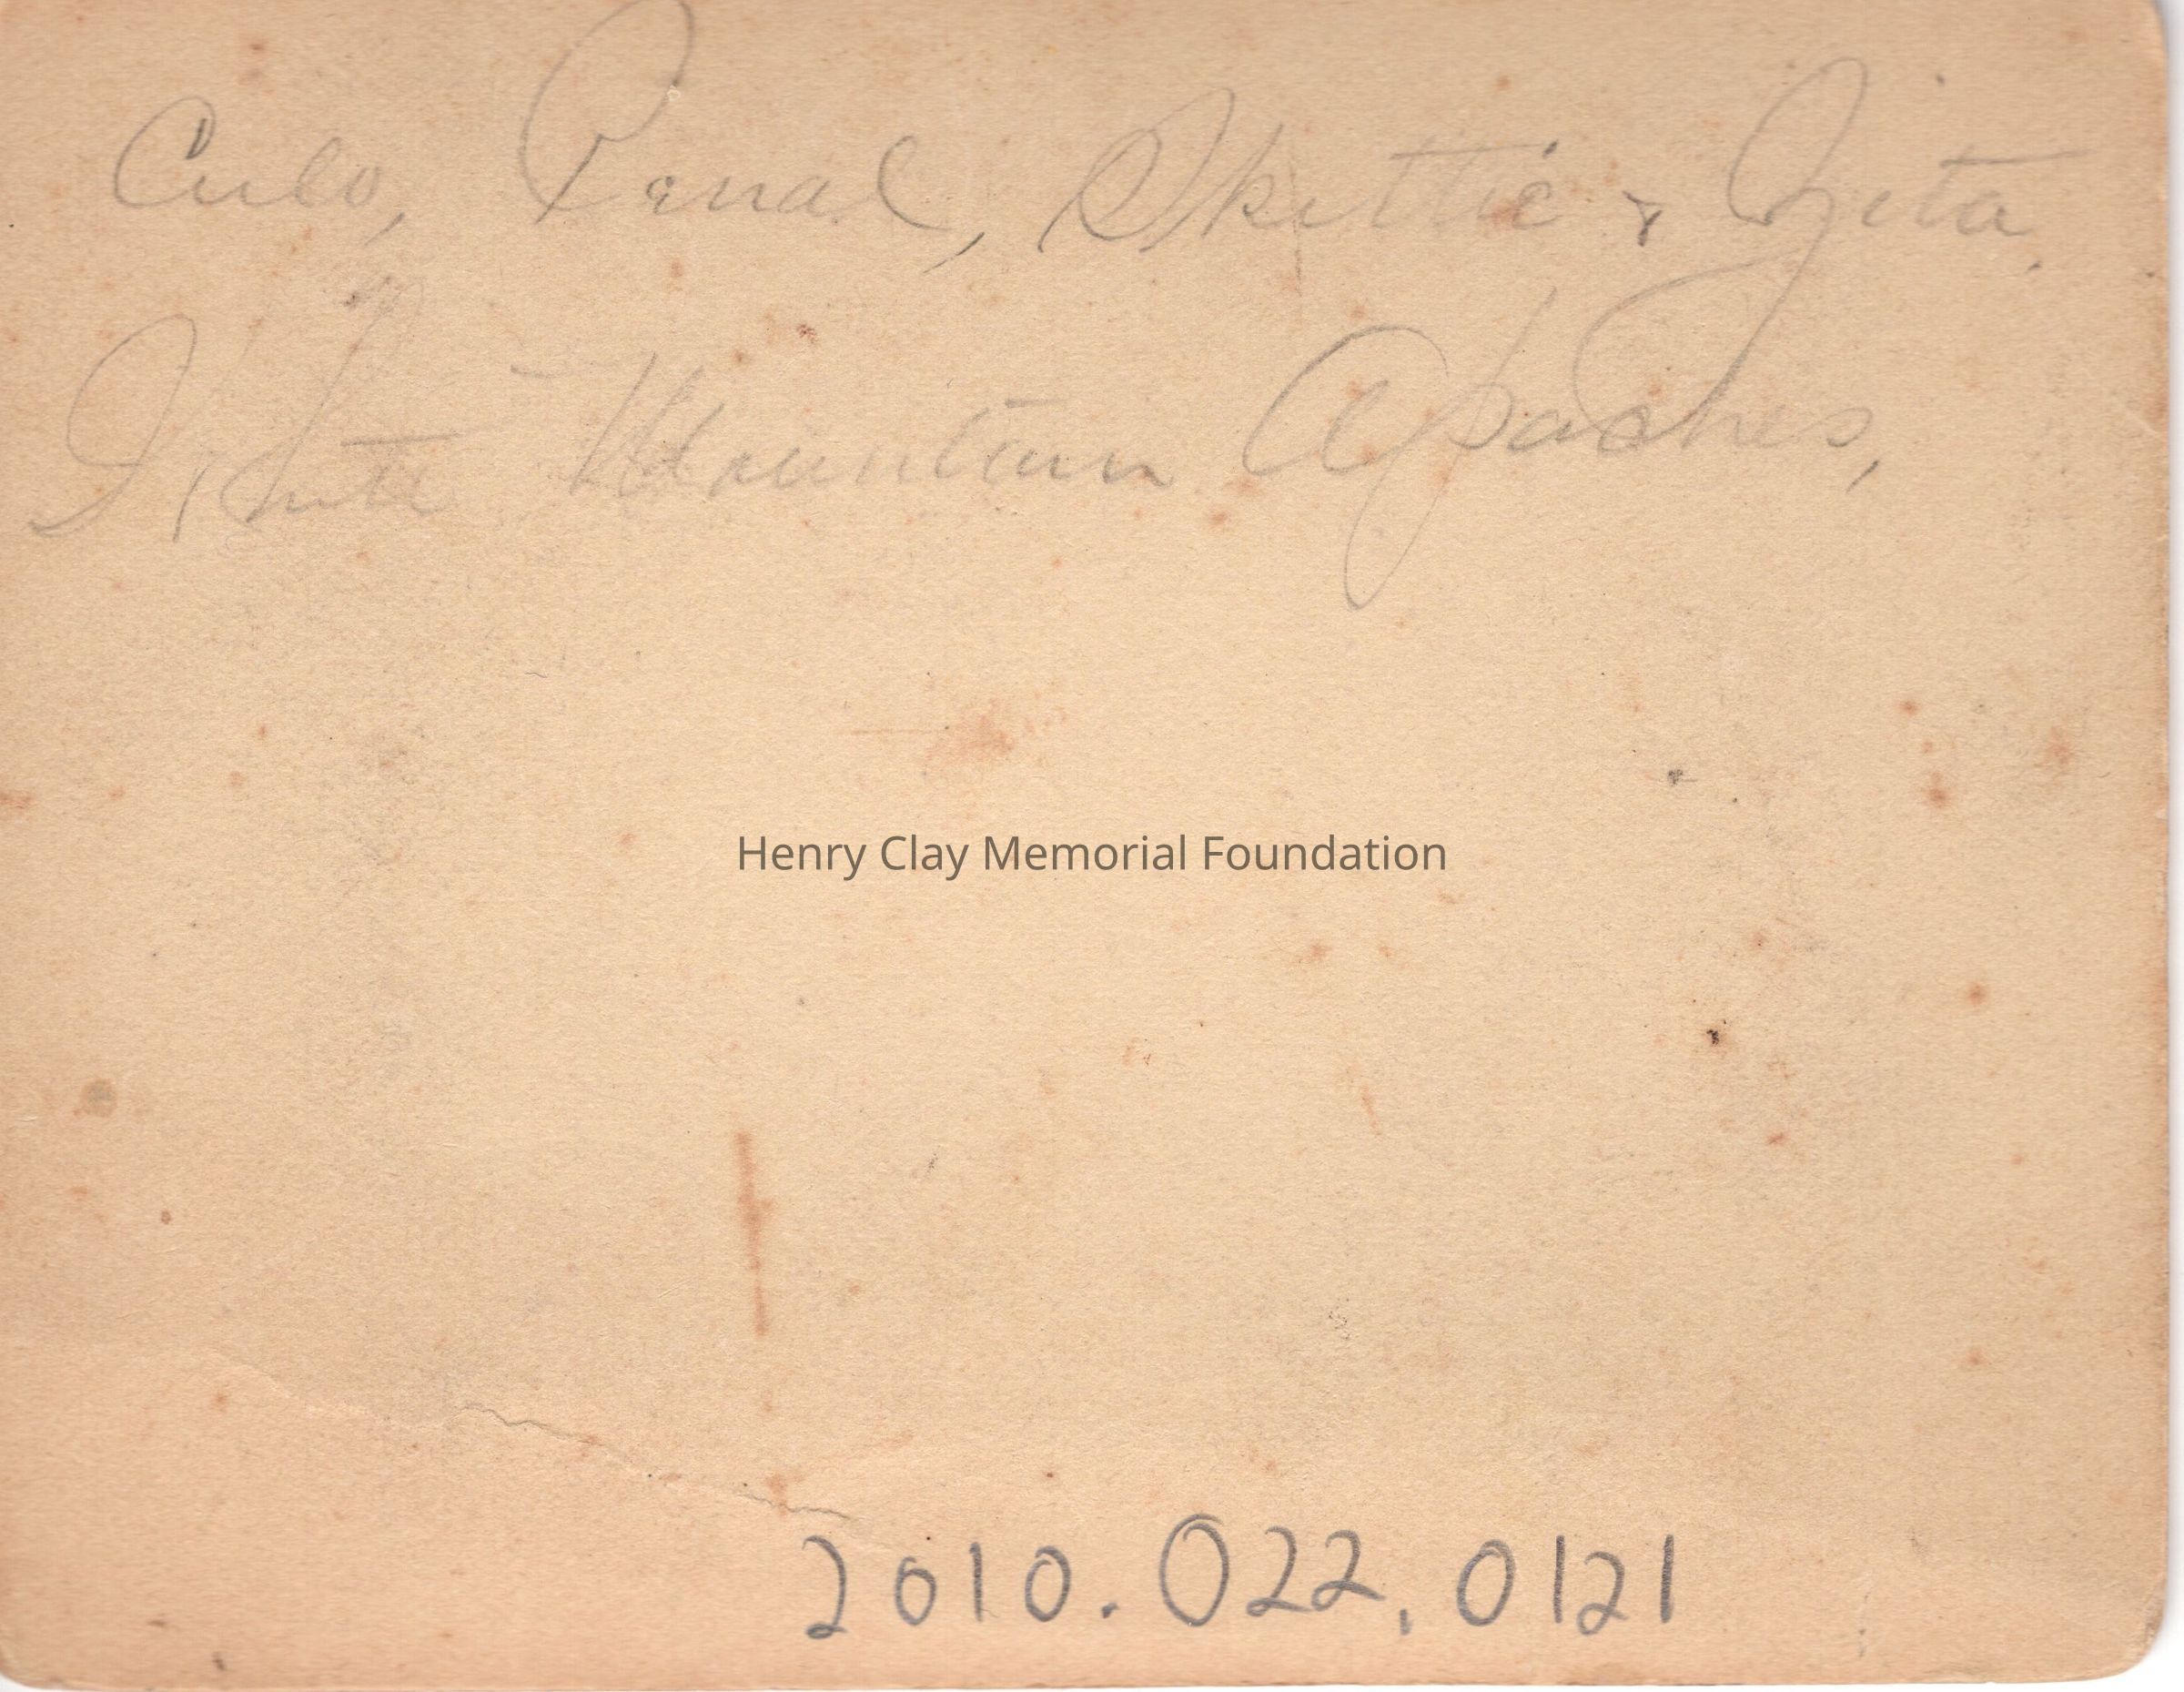 Culo, Penal, Skittie & Ozita.
White Mountain Apaches,
Henry Clay Memorial Foundation
2010.022.0121